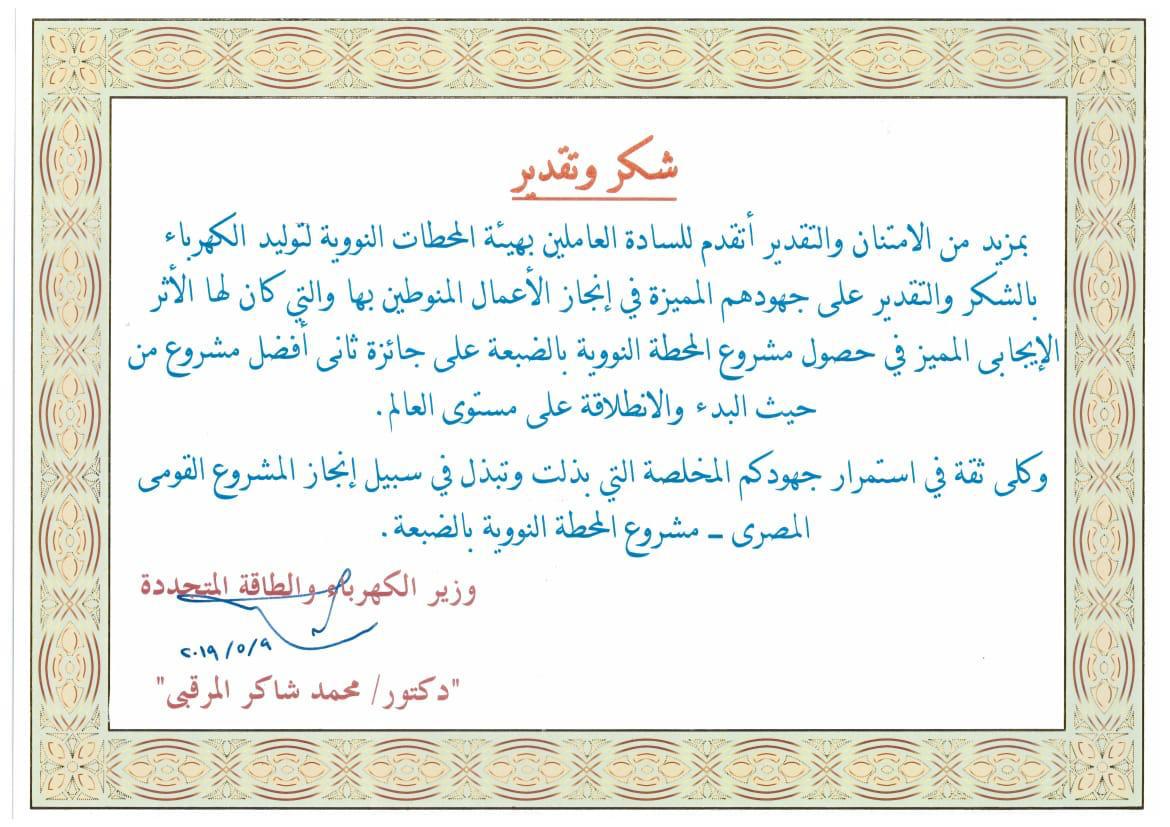 شكر وتقدير
بمزيد من الامتنان والتقدير أتقدم للسادة العاملين بهيئة المحطات النووية لتوليد الكهرباء
بالشكر والتقدير على جهودهم المميزة في إنجاز الأعمال المنوطين بها والتي كان لها الأثر
الإيجابى المميز في حصول مشروع المحطة النووية بالضبعة على جائزة ثانى أفضل مشروع من
حيث البدء والانطلاقة على مستوى العالم.
وكلى ثقة في استمرار جهودكم المخلصة التي بذلت وتبذل في سبيل إنجاز المشروع القومى
المصرى – مشروع المحطة النووية بالضبعة.
وزير الكهرباء والطاقة المتجددة
٢٠١٩/٥/٩
"دكتور/ محمد شاكر المرقبى"